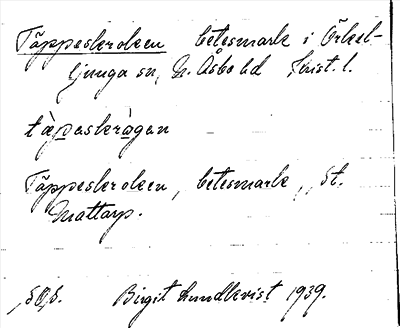 Täppeskroken betesmark i Örkel-
ljunga sn, N. Åsbo hd Krist. l.
täpaskrågan
Täppeskroken, betesmark, St.
Mattarp.
Birgit Lundkvist 1939.